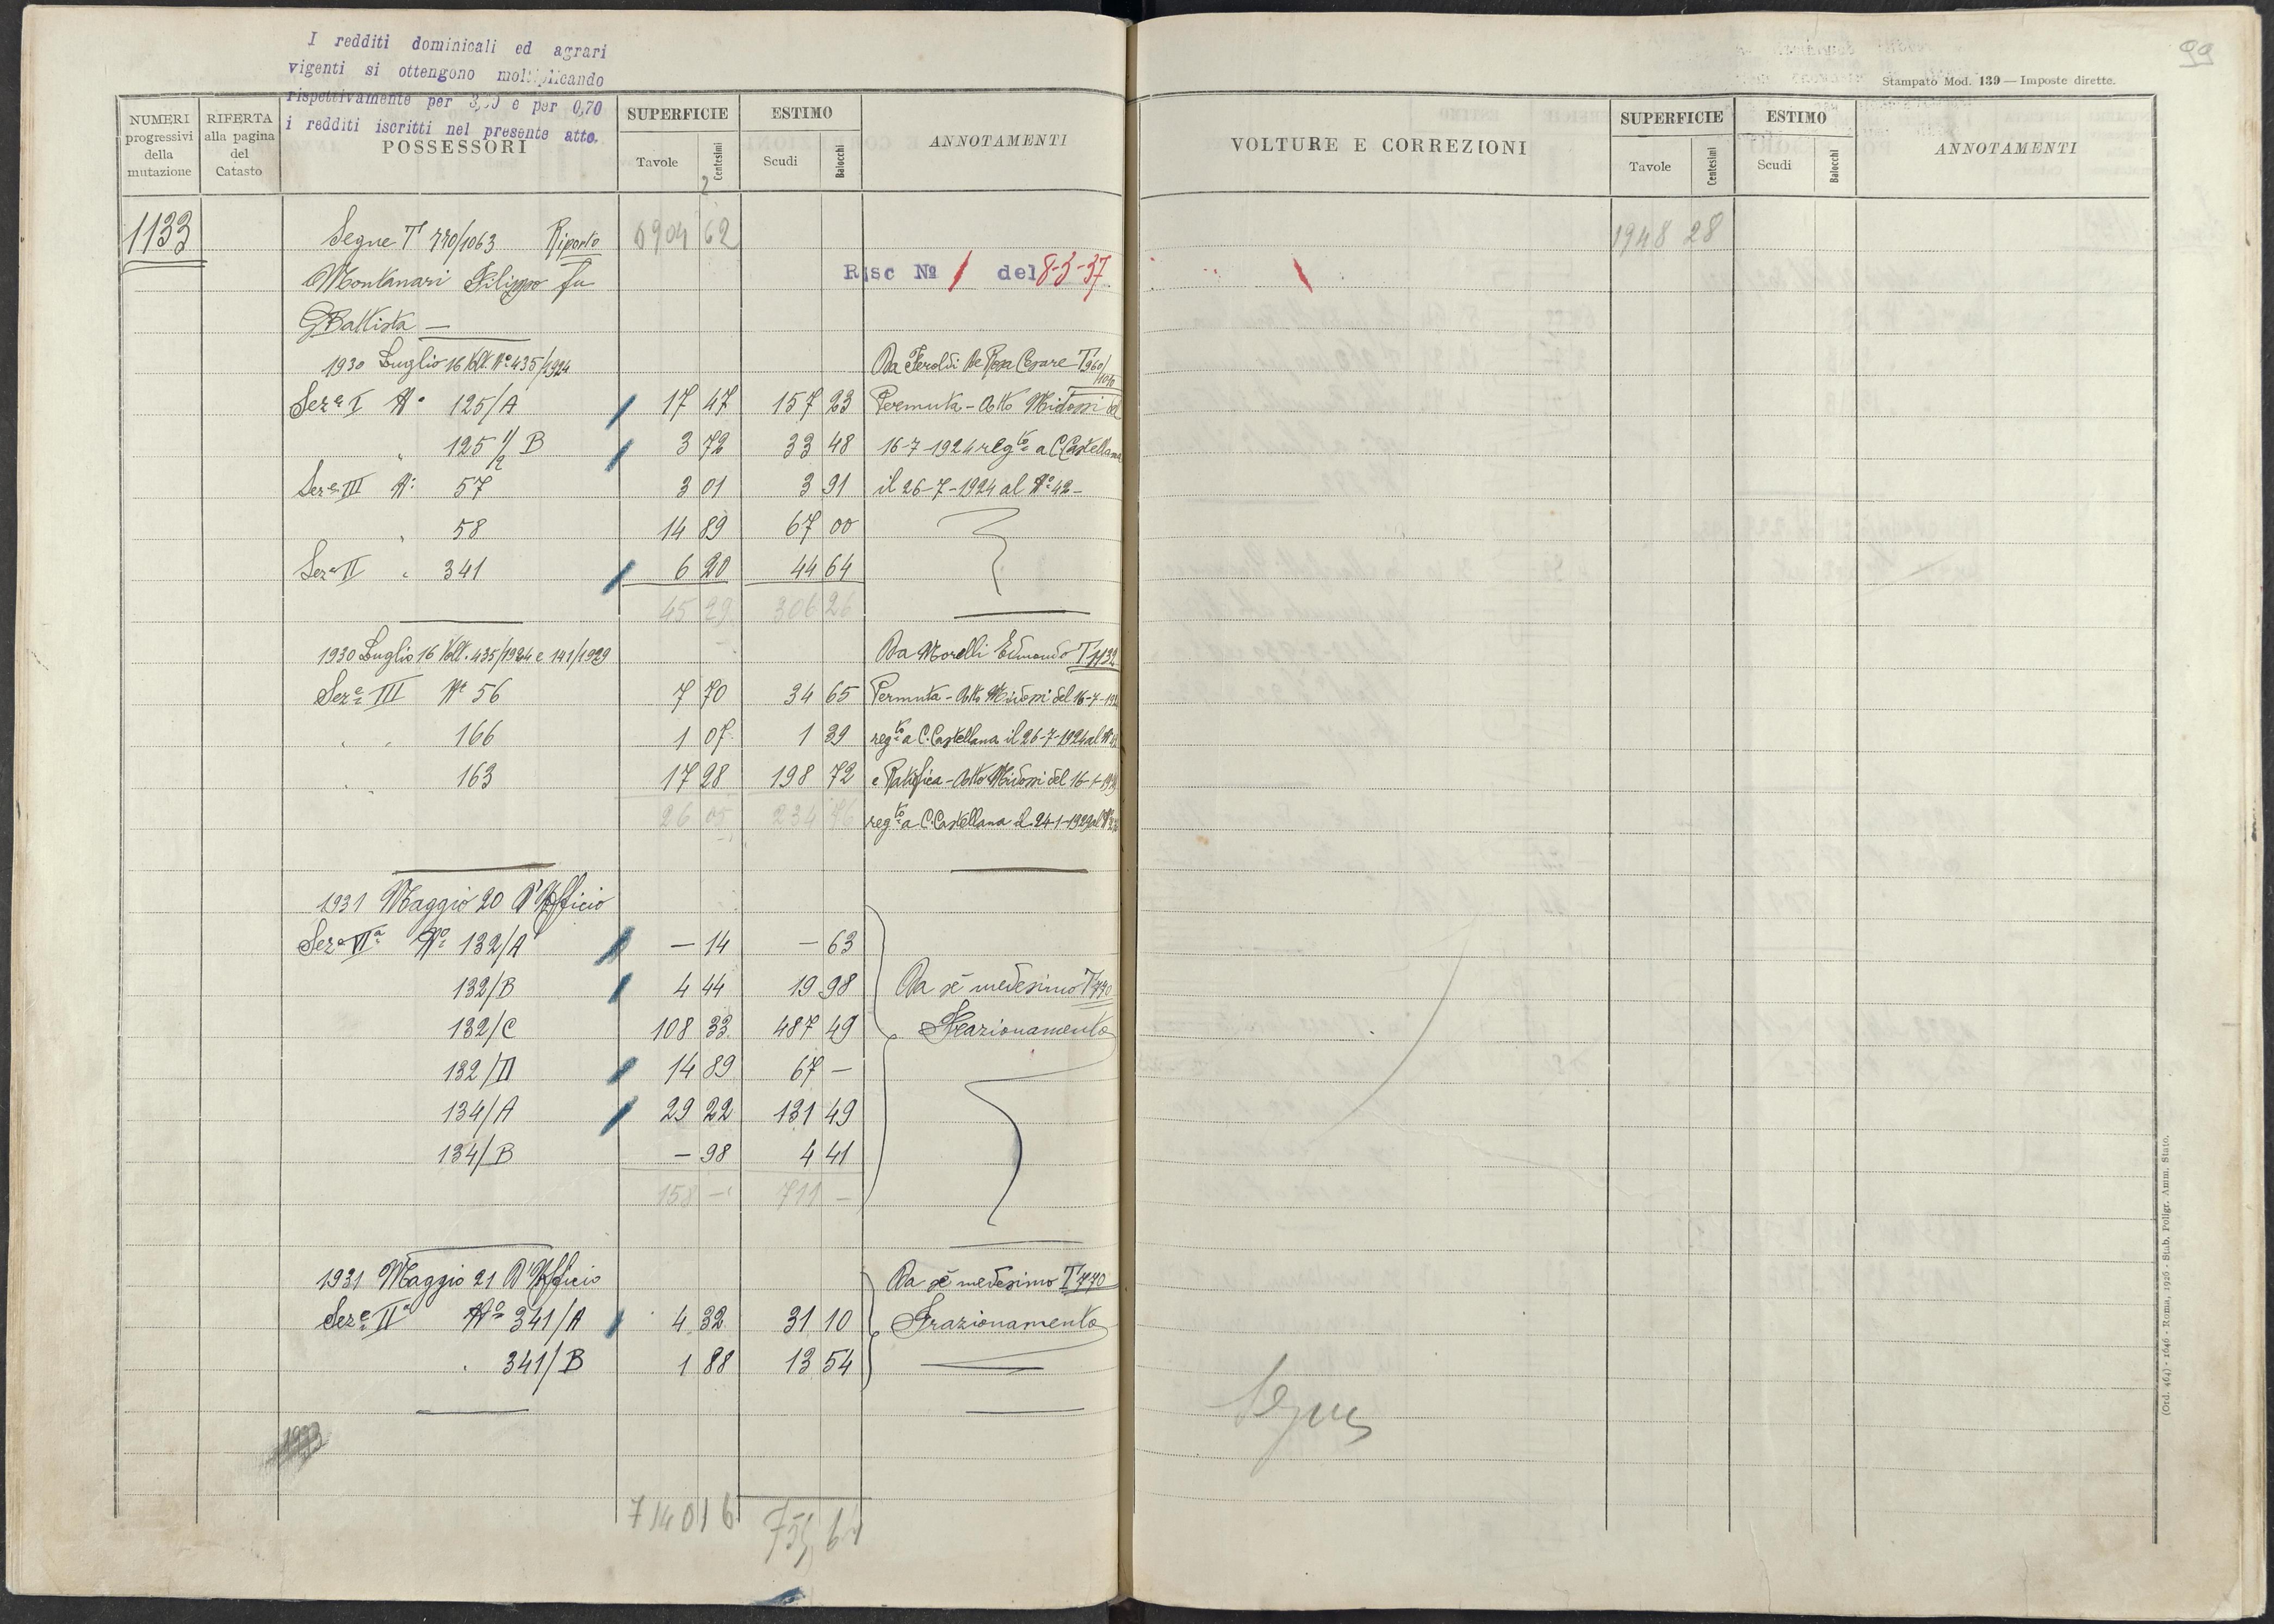 I redditi dominicali ed agrari
vigenti si ottengono moltiplicando
rispettivamente per e per 0,70
i redditi iscritti nel presente atto.
NUMERI progressivi della mutazione
RIFERTA alla pagina del Catasto
POSSESSORI
SUPERFICIE
Tavole Centesimi
ESTIMO
Scudi Baiocchi
ANNOTAMENTI
1133 Segue T 770/1063 Riporto 6904 62
Montanari Filippo fu Risc No 1 del 8-3-37
GBattista —
1930 Luglio 16 Volt. No 435/1924 Da Feroldi De Rosa Cesare T 960/
Seze I No 125/A 17 47 157 23 Permuta - Atto Midossi del
" 125 1/2 B 3 72 33 48 16-7-1924 regto a C. Castellana
Seze III No 57 3 01 3 91 il 26-7-1924 al No 42 -
" 58 14 89 67 00
Seze II " 341 6 20 44 64
45 29 306 26
1930 Luglio 16 Volt. 435/1924 e 141/1929 Da Morelli Edmondo T 1132
Seze III No 56 7 70 34 65 Permuta - Atto Midossi del 16-7-192
" " 166 1 07 1 39 regto a C. Castellana il 26-7-1924 al No
" " 163 17 28 198 72 e Ratifica - Atto Midossi del 16-1-1929
26 05 234 76 regto a C. Castellana il 24-1-1929 al No
1931 Maggio 20 D'Ufficio
Seze VIa No 132/A — 14 — 63
132/B 4 44 19 98 Da sè medesimo T 770
132/C 108 33 487 49 Frazionamento
132/D 14 89 67 —
134/A 29 22 131 49
134/B — 98 4 41
158 — 711 —
1931 Maggio 21 D'Ufficio Da sè medesimo T 770
Seze IIa No 341/A 4 32 31 10 Frazionamento
" 341/B 1 88 13 54
1933
7140 16 755,61
99
Stampato Mod. 139 — Imposte dirette.
VOLTURE E CORREZIONI
SUPERFICIE
Tavole Centesimi
ESTIMO
Scudi Baiocchi
ANNOTAMENTI
1948 28
Segue
(Ord. 464) - 1646 - Roma, 1926 - Stab. Poligr. Amm. Stato.